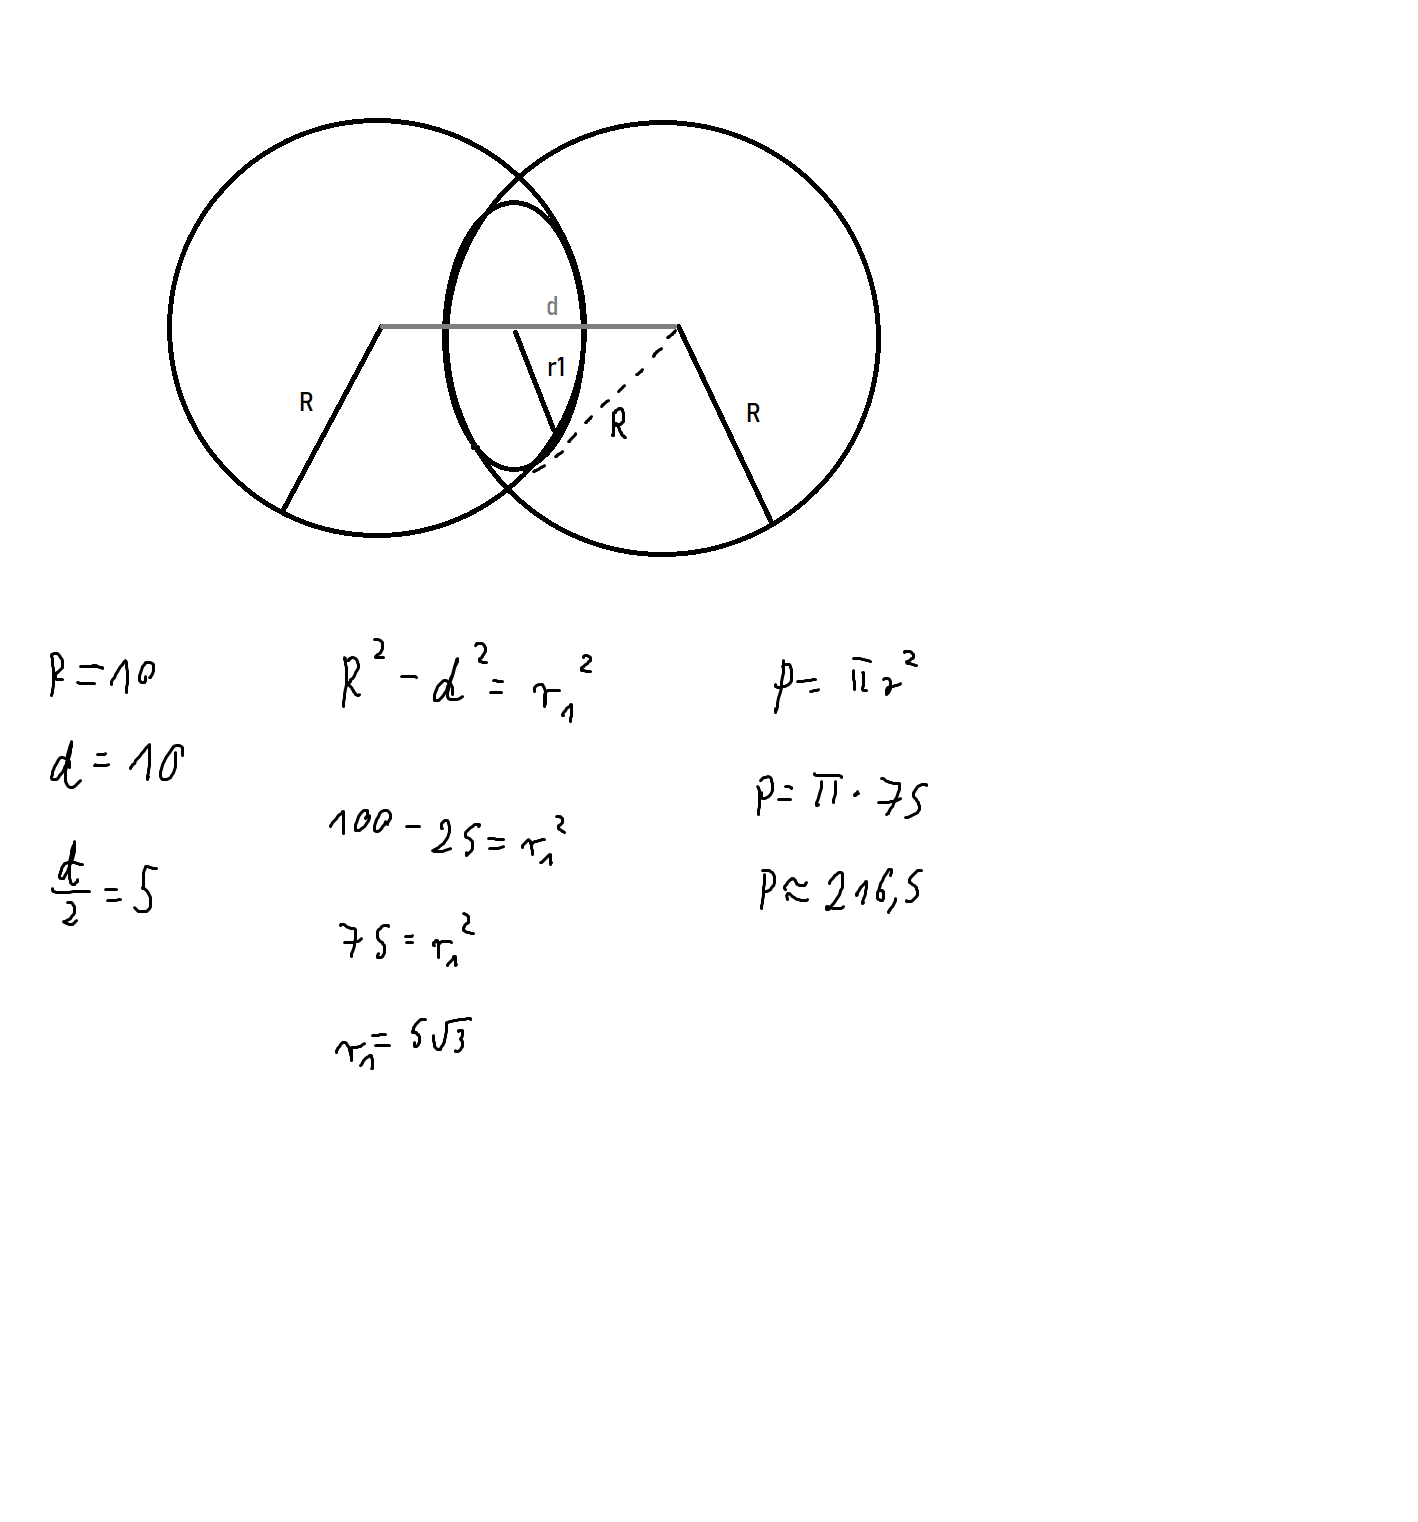 d
r1
R
R
R
R = 10
d = 10
d/2 = 5
R² - d² = r₁²
100 - 25 = r₁²
75 = r₁²
r₁ = 5√3
P = π r²
P = π · 75
P ≈ 216,5